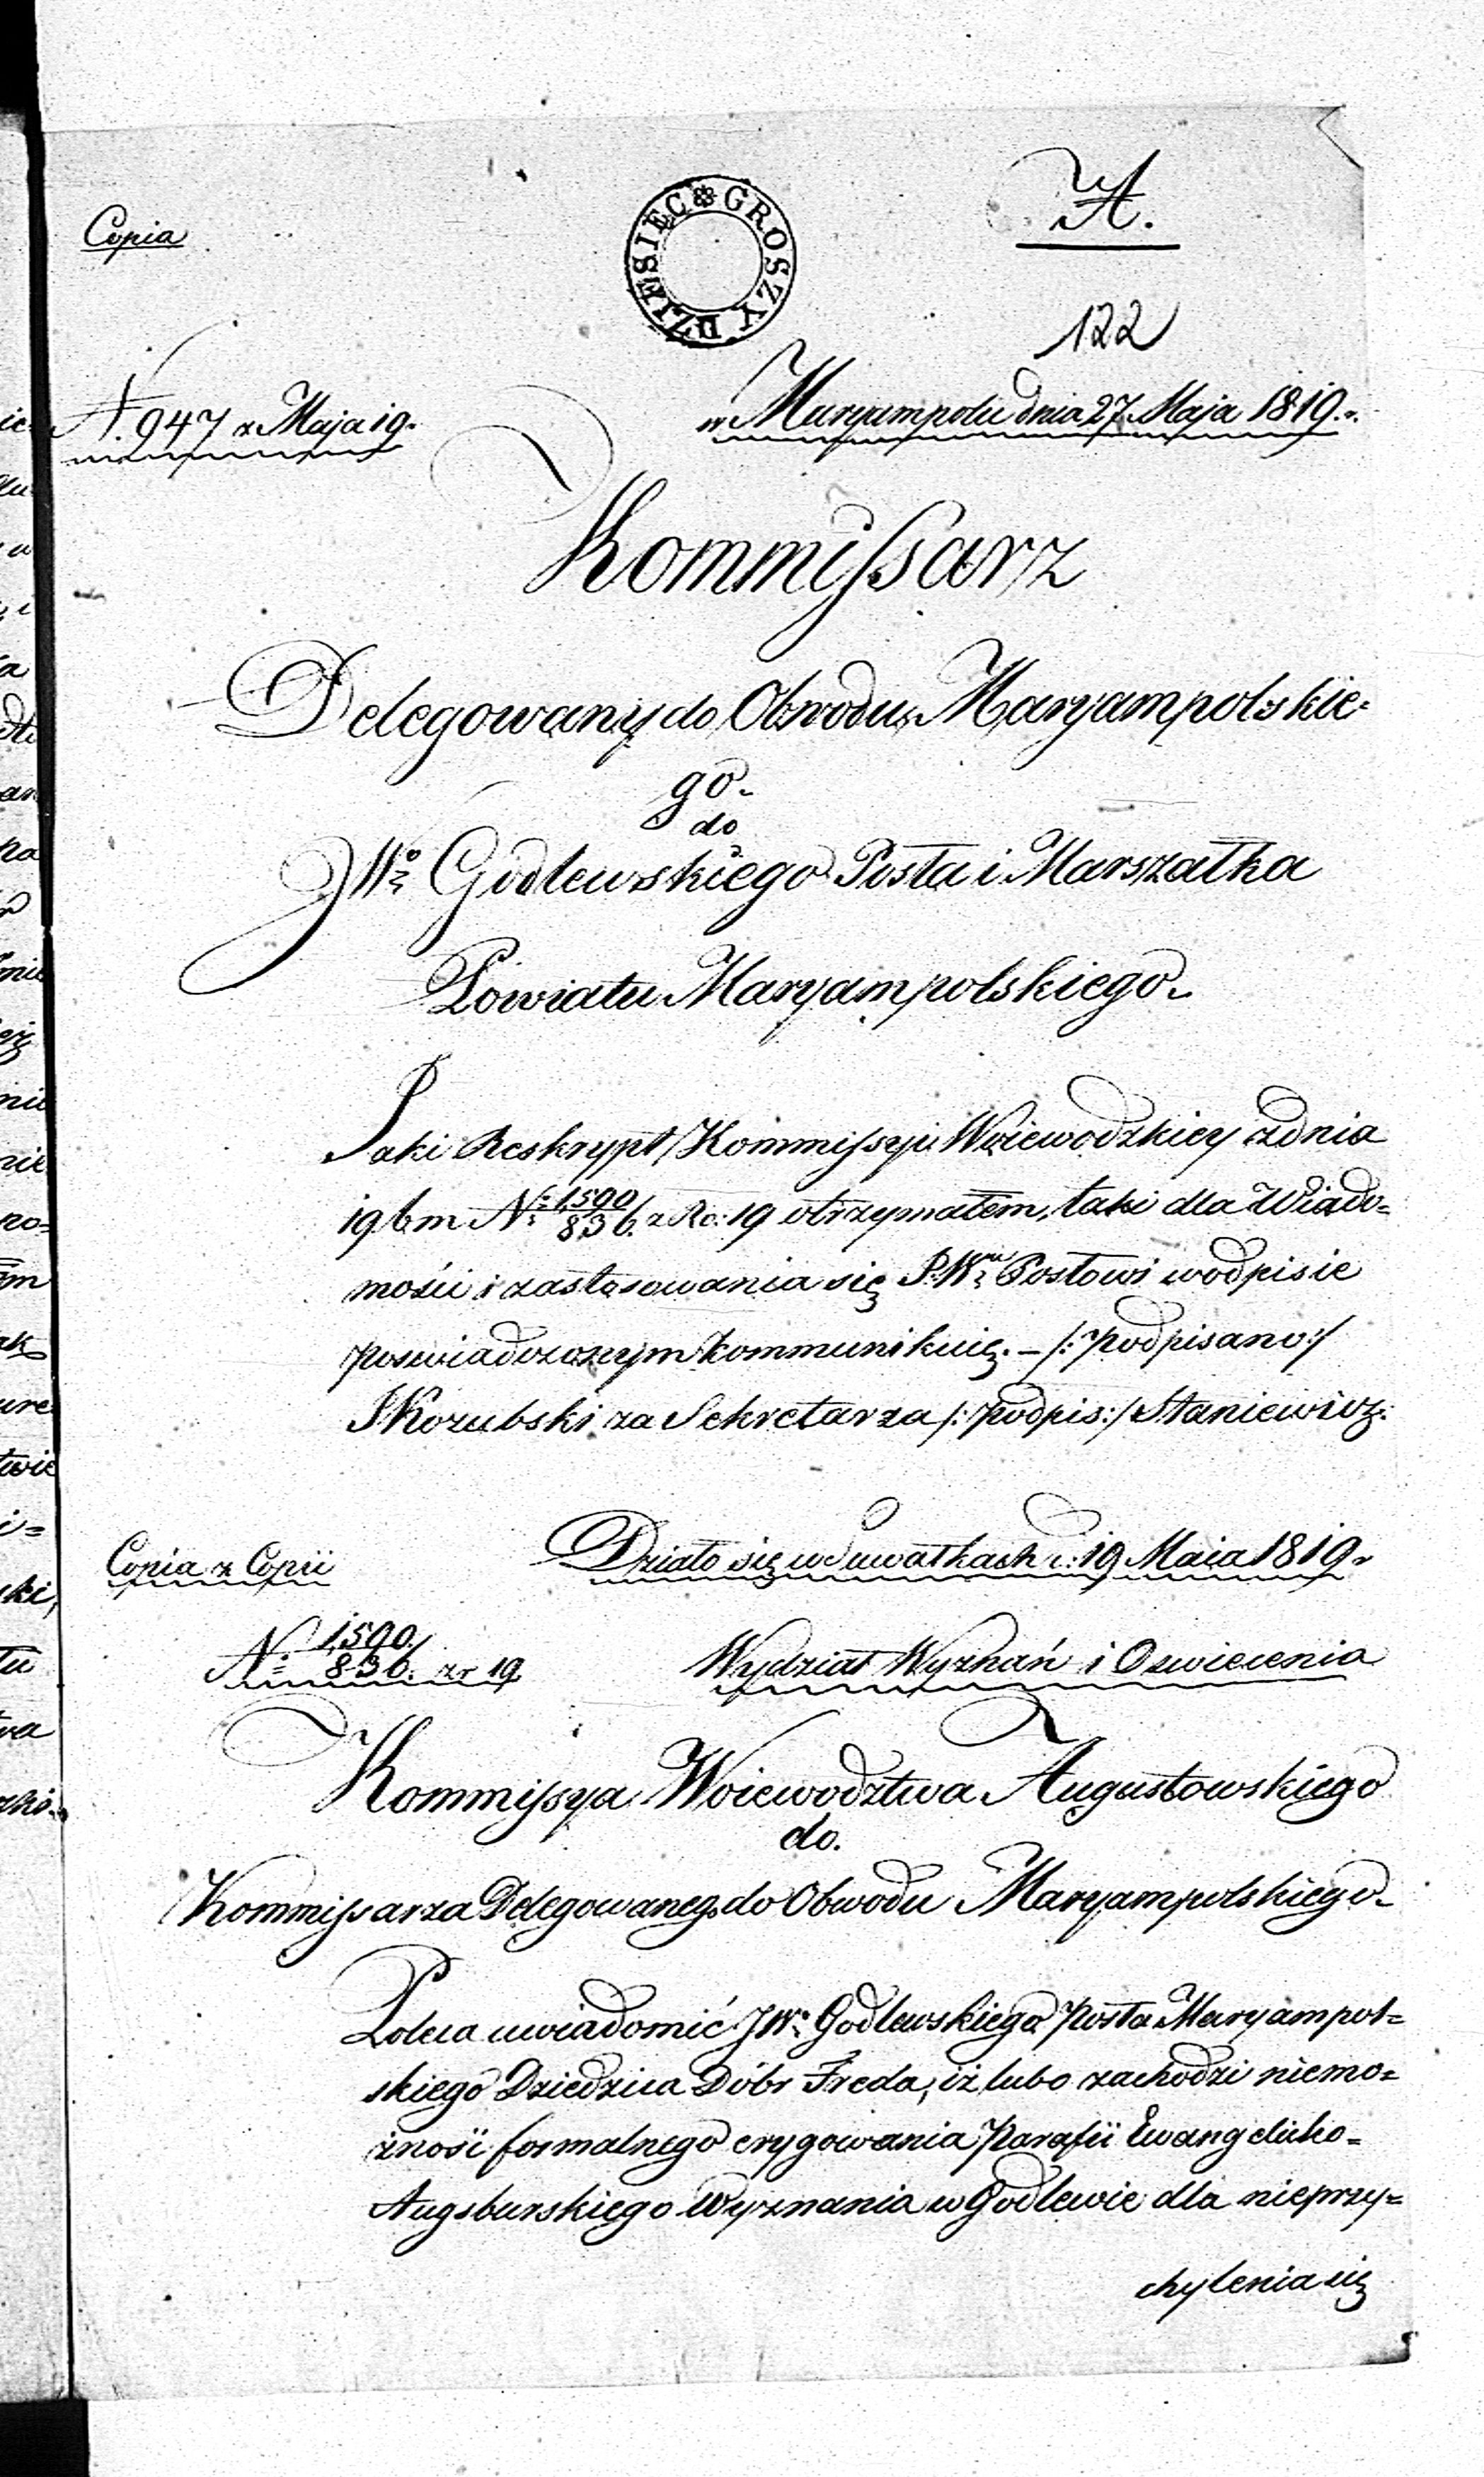 A.
Copia
DZIESIĘC GROSZY
122
N. 947 z Maja 19.
w Maryampolu dnia 27 Maja 1819.
Kommissarz
Delegowany do Obwodu Maryampolskie-
go.
do
JWo Godlewskiego Posła i Marszałka
Powiatu Maryampolskiego.
Jaki Reskrypt Kommissyi Woiewodzkiey z dnia
19 bm No 1,590/836. z Ro: 19 otrzymałem, taki dla Wiado=
mości i zastosowania się JWmu Posłowi w odpisie
poswiadczonym kommunikuię. – /: podpisano :/
JKozubski za Sekretarza /: podpis :/ Staniewicz.
Copia z Copii
Działo się w Suwałkach d: 19 Maia 1819.
No 1,590./836. z r 19
Wydział Wyznań i Oswiecenia
Kommissya Woiewodztwa Augustowskiego
do.
Kommissarza Delegowanego do Obwodu Maryampolskiego.
Poleca uwiadomić JWo Godlewskiego Posła Maryampol=
skiego Dziedzica Dóbr Freda, iż lubo zachodzi niemo=
żność formalnego erygowania Parafii Ewangelicko=
Augsburskiego Wyznania w Godlewie dla nieprzy=
chylenia się